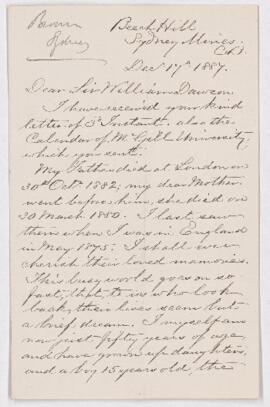 Brown
Sydney
Beech Hill
Sydney Mines.
C.B.
Decr 17th 1887.
Dear Sir William Dawson
I have received your kind
letter of 3d Instant. also the
Calendar of McGill University
which you sent.
My Father died at London on
30th Octr 1882; my dear Mother
went before him, she died on
20 March 1880. I last saw
them when I was in England
in May 1875: I shall ever
cherish their loved memories.
This busy world goes on so
fast, that, to us who look
back, their lives seem but
a brief dream. I myself am
now just fifty years of age
and have grown up daughters,
and a boy 15 years old, the